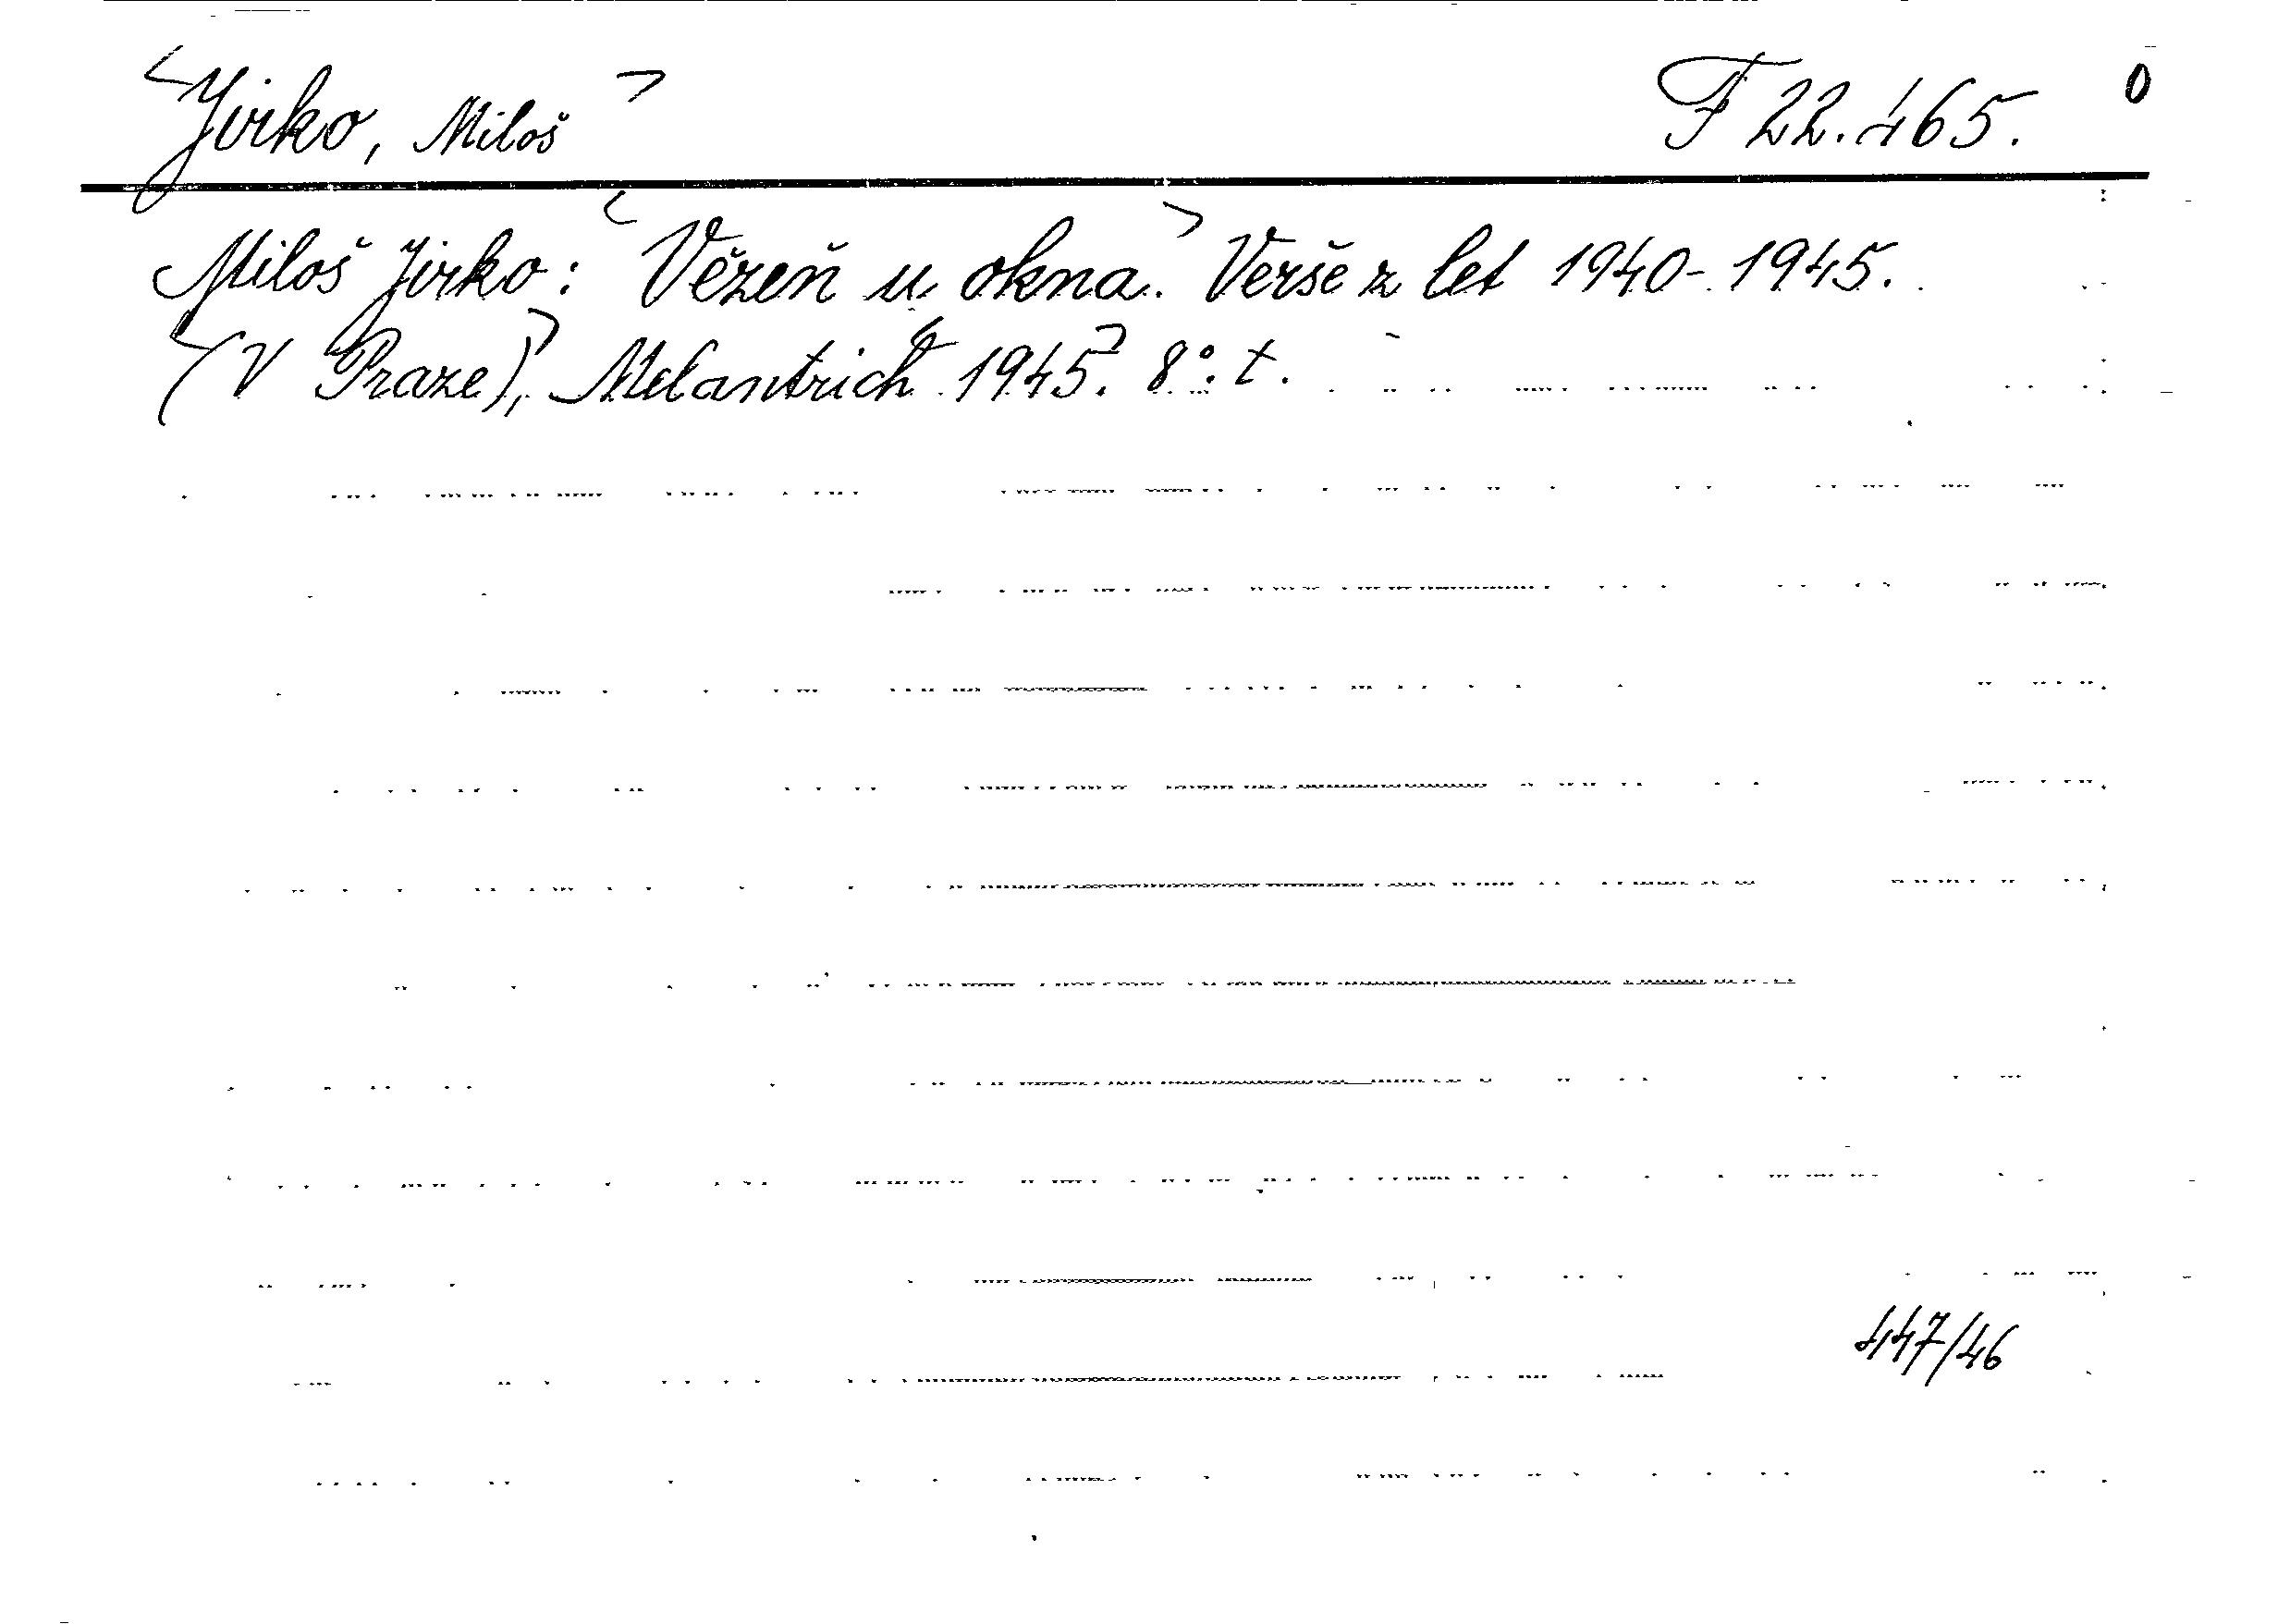 Jirko, Miloš F 22.465. 0
Miloš Jirko: Vězeň u okna. Verše z let 1940-1945.
(V Praze), Melantrich 1945. 8°. t.
447/46